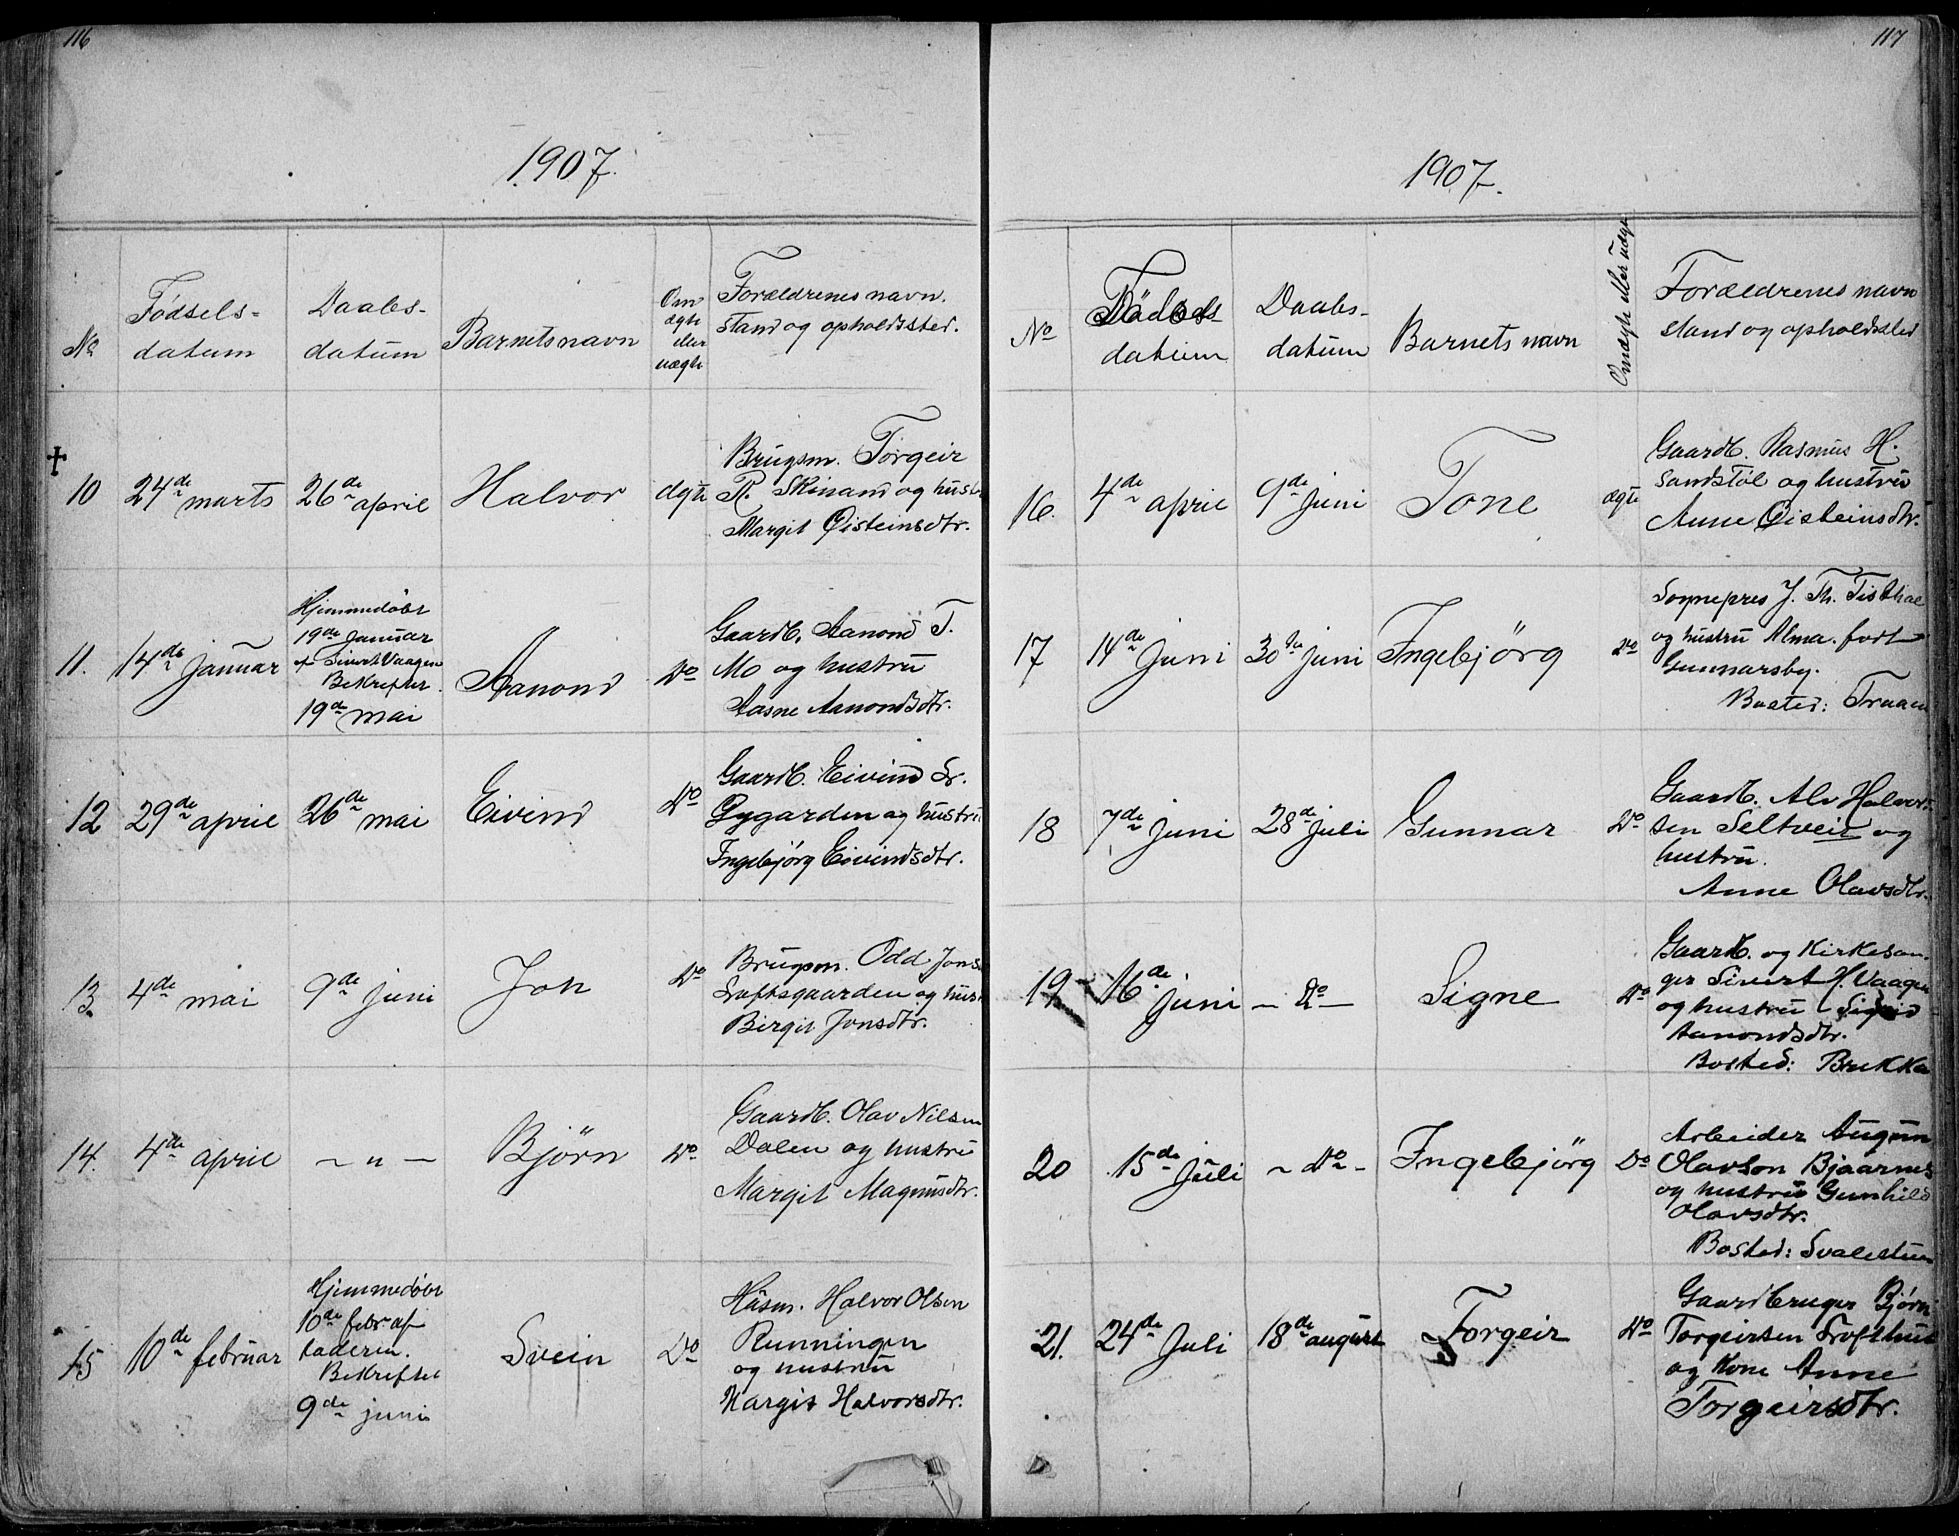 116
1907.
No
Fødsels-
datum
Daabs-
datum
Barnets navn
Om
ægte
eller
uægte
Forældrenes navn.
stand og opholdssted.
10
24de marts
26de april
Halvor
ægte
Brugsm. Torgeir
R. Skinand og hustr
Margit Øisteinsdtr.
11.
14de januar
Hjemmedøbt
19de Januar
af Sivert Vaagen
Bekræftet.
19de mai
Aanond
Do
Gaardb. Aanond T.
Mo og hustru
Aasne Aanondsdtr.
12
29de april
26de mai
Eivind
Do
Gaardb. Eivind Sr.
Nygarden og hustru
Ingebjörg Eivindsdtr.
13.
4de mai
9de juni
Jon
Do
Brugsm. Odd Jons
Loftsgaarden og hust
Birgit Jonsdtr.
14.
4de april
- " -
Bjørn
Do
Gaardb. Olav Nilsen
Dalen og hustru
Margit Magnusdtr.
15
10de februar
Hjemmedøbt
10de febr af
faderen.
Bekræftet
9de juni
Svein
Do
Husm. Halvor Olsen
Runningen
og hustru
Margit Halvorsdtr.
117
1907.
No
Födsels-
datum
Daabs-
datum
Barnets navn
Om ægte eller uægt
Forældrenes navn
stand og opholdssted
16.
4de april
9de Juni
Tone
ægte
Gaardb. Rasmus H.
Sandstöl og hustru
Anne Øisteinsdtr.
17
14de Juni
30te juni
Ingebjörg
Do
Sognepres J. Th. Tisthal
og hustru Alma. født
Gunnarsby.
Bosted: Traaen
18
7de juni
28de Juli
Gunnar
Do
Gaardb. Alv Halvor-
sen Seltveit og
hustru.
Anne Olavsdtr.
19
16de Juni
- Do -
Signe
Do
Gaardb. og Kirkesan-
ger Sivert H. Vaagen
og hustru Sigrid
Aanondsdtr.
Bosted: Brekka
20
15de Juli
- Do -
Ingebjörg
Do
Arbeider Augun
Olavson Bjaarnes
og hustru Gunhild
Olavsdtr.
Bosted: Svalestuen
21.
24de Juli
18de august
Torgeir
Do
Gaardbruger Bjørn
Torgeirsen Lofthus
og Kone Anne
Torgeirsdtr.